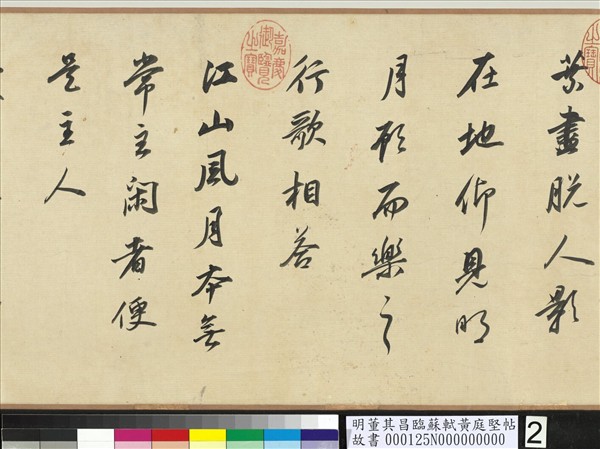 葉盡脫人影
在地仰見明
月顧而樂之
行歌相答
江山風月本無
常主閑者便
是主人
嘉慶御覽之寶
明董其昌臨蘇軾黃庭堅帖
故書 000125N000000000
2